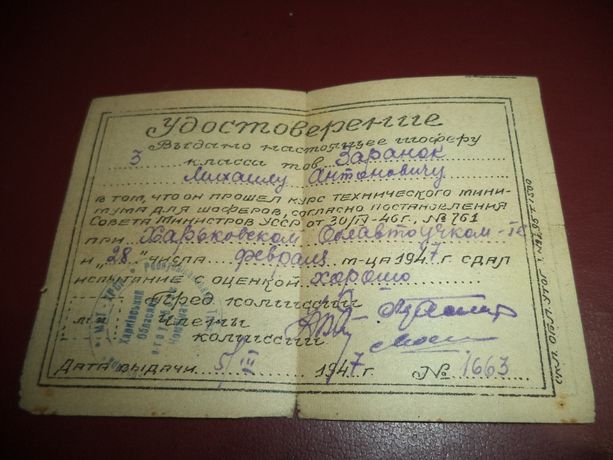 Удостоверение
Выдано настоящее шоферу
3 класса тов. Заранок
Михаилу Антоновичу
в том, что он прошел курс технического мини-
мума для шоферов, согласно постановления
Совета Министров УССР от 30/IV-46г., №761
при Харьковском Облавтоучком-те
и "28" числа февраля м-ца 1947 г. сдал
испытание с оценкой хорошо
Председ. комиссии
Члены
комиссии
Дата выдачи 5/III 1947 г. № 1663